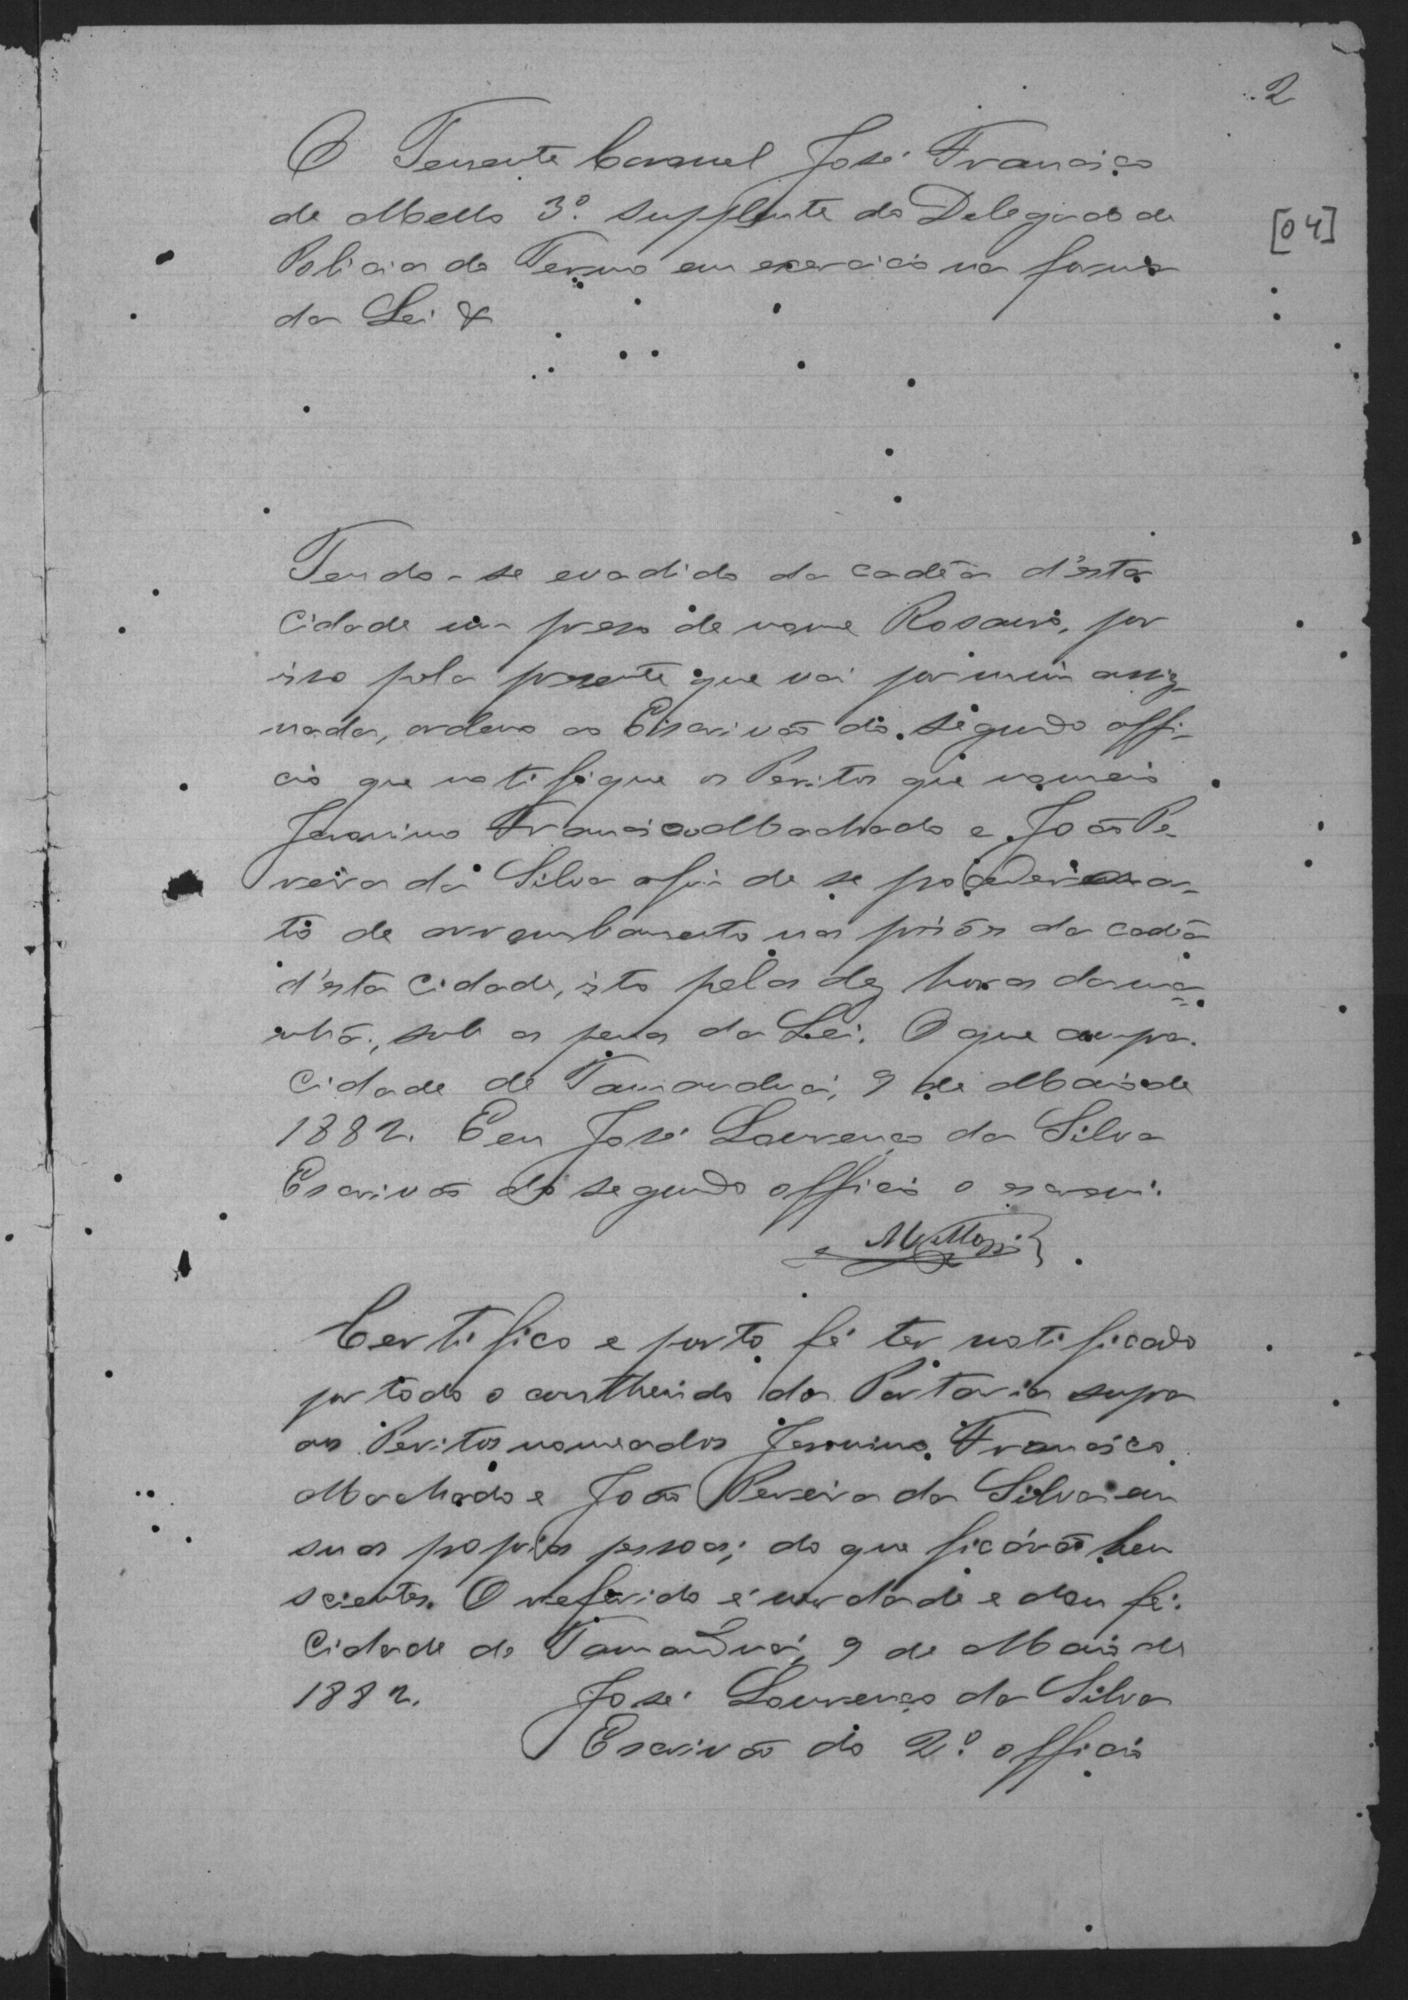 2
O Tenente Coronel José Francisco
de Mello 3º. supplente do Delegado de
[04]
Policia do Termo em exercicio na forma
da Lei &
Tendo-se evadido da cadêa d'esta
Cidade um preso de nome Rosauro, por
isso pela presente que vai por mim assig-
nada, ordeno ao Escrivão do segundo offi-
cio que notifique os Peritos que nomeio
Jeronimo Francisco Machado e João Pe-
reira da Silva afim de se proceder
to de arrombamento nas prisões da cadêa
d'esta Cidade, isto pelas dez horas da ma-
nhã, sob as penas da Lei. O que cumpra.
Cidade de Tamanduá, 9 de Maio de
1882. Eu José Lourenço da Silva
Escrivão do segundo officio o escrevi.
Certifico e porto fé ter notificado
por todo o contheudo da Portaria supra
aos Peritos nomeados Jeronimo Francisco
Machado e João Pereira da Silva em
suas proprias pessoas; do que ficárão bem
scientes. O referido é verdade e dou fé.
Cidade de Tamanduá, 9 de Maio de
1882. José Lourenço da Silva
Escrivão do 2º. officio